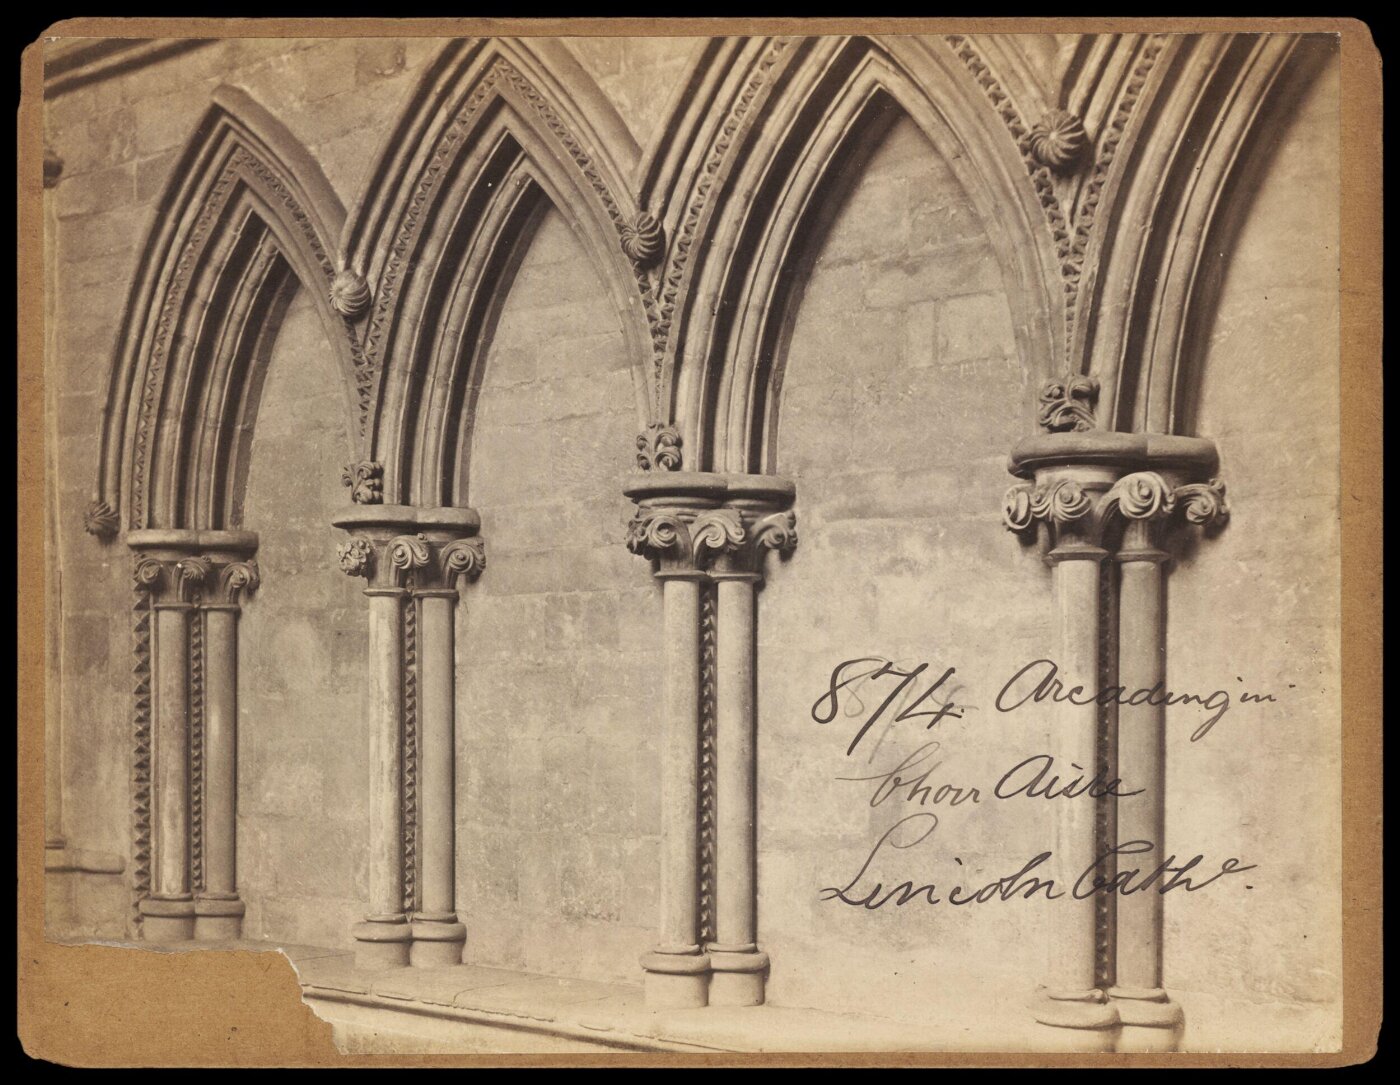 874. Arcading in
Choir Aisle
Lincoln Cathe.